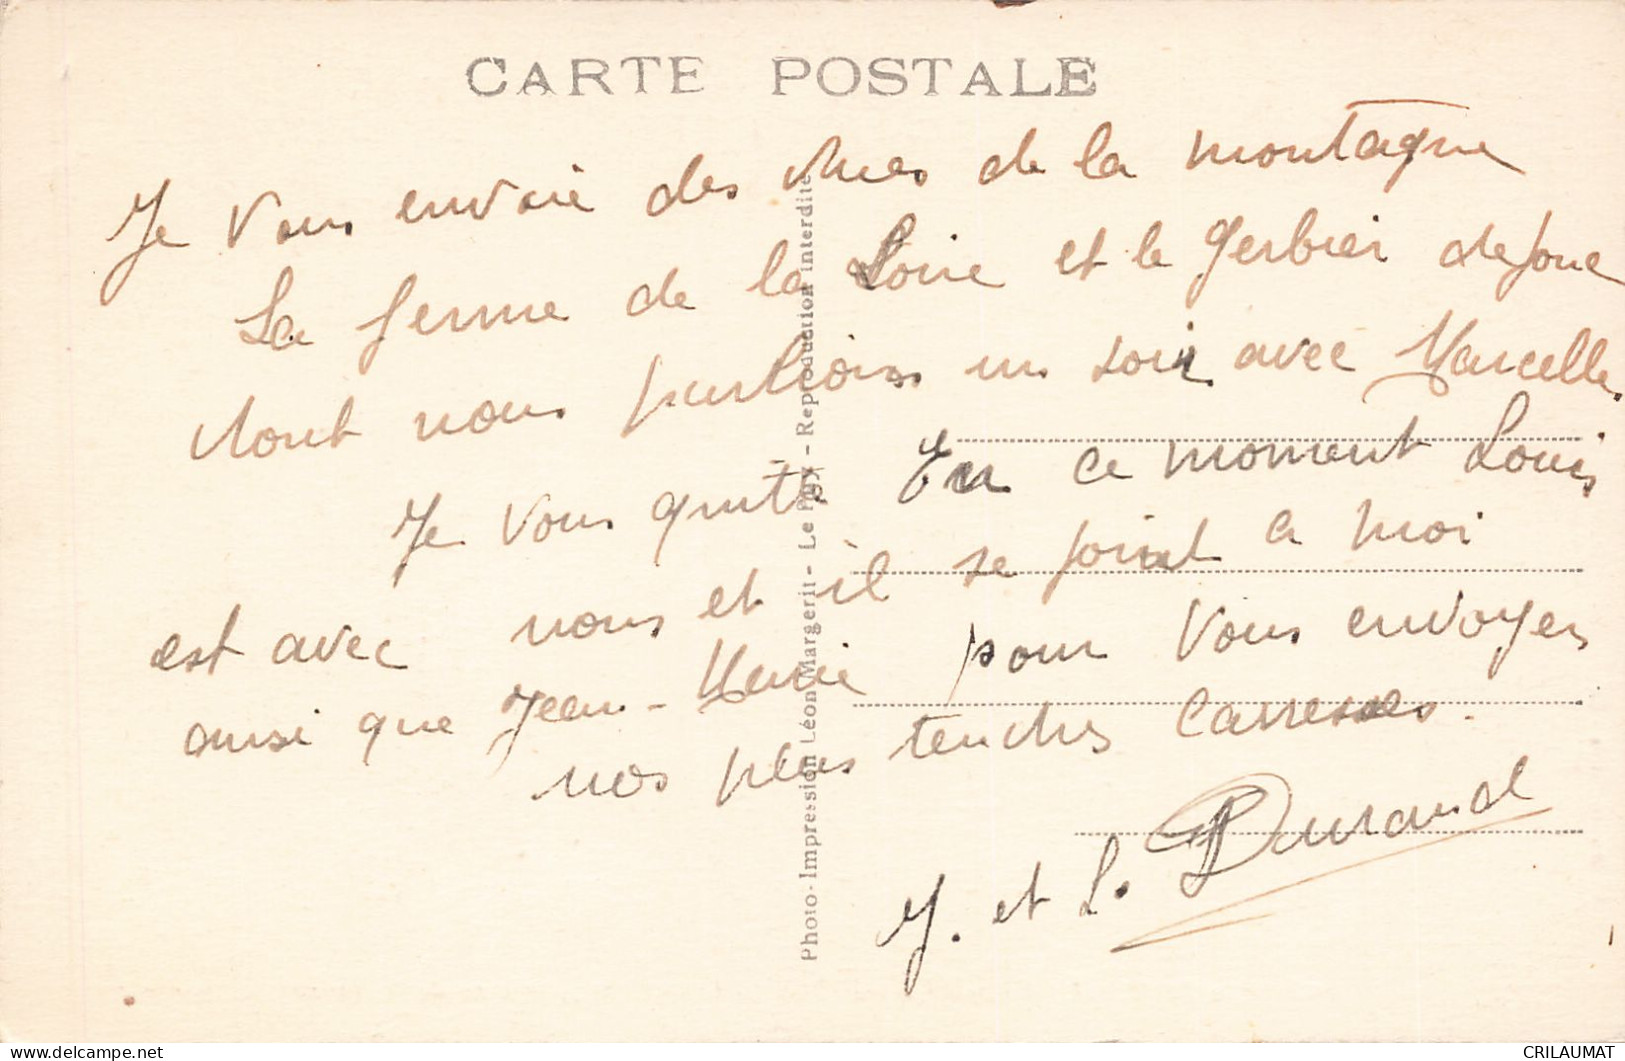 CARTE POSTALE
Je vous envoie des vues de la montagne
La ferme de la Loire et le gerbier de Jonc
dont nous parlions un soir avec Marcelle.
Je vous quitte En ce moment Louis
est avec nous et il se joint a moi
ainsi que Jean-Marie pour vous envoyer
nos plus tendres caresses.
J. et L. Durand
Photo-Impression Léon Margerit - Le Puy - Reproduction interdite
CRILAUMAT